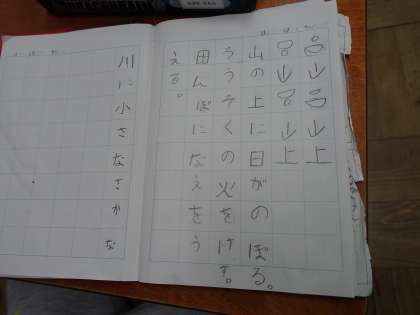 山山上
山山上
山の上に日がのぼる。
ろうそくの火をけす。
田んぼになえをう
える。
川に小さなさかな